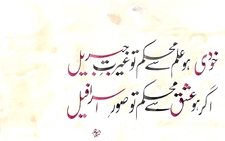 خودی ہو علم سے محکم تو غیرتِ جبریل
اگر ہو عشق سے محکم تو صورِ اسرافیل